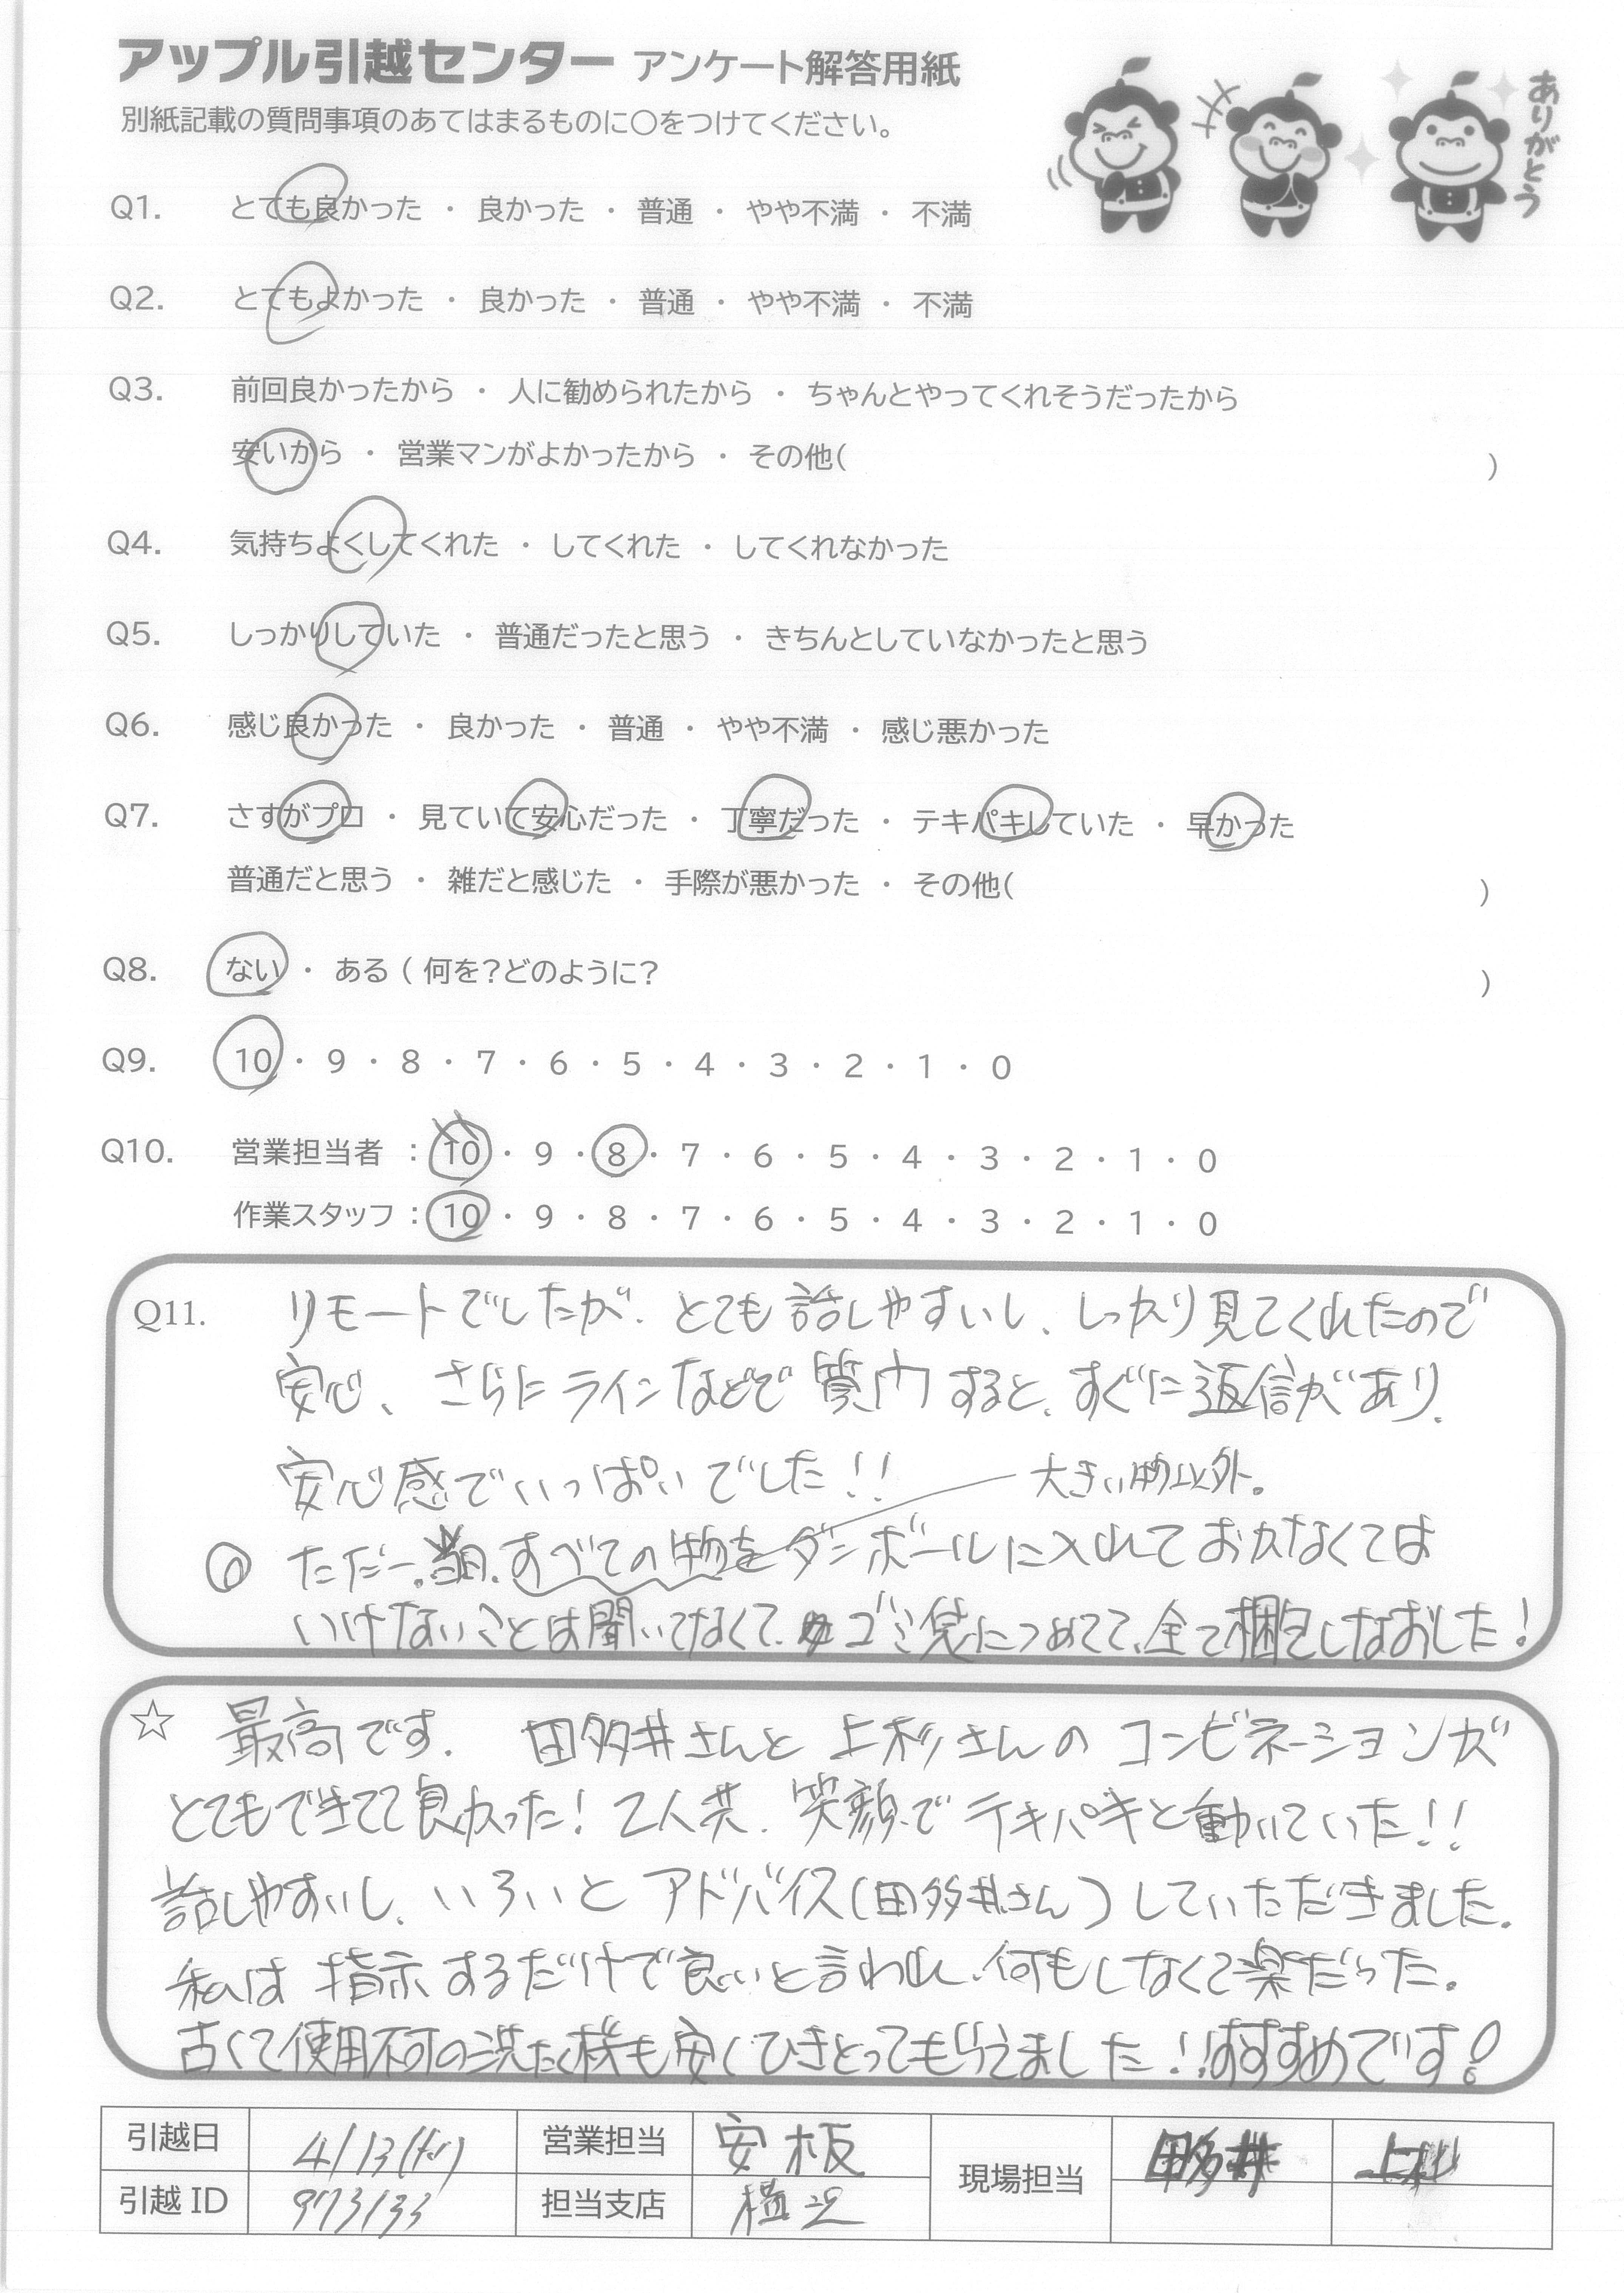 アップル引越センター アンケート解答用紙
別紙記載の質問事項のあてはまるものに〇をつけてください。
ありがとう
Q1. とても良かった ・ 良かった ・ 普通 ・ やや不満 ・ 不満
Q2. とてもよかった ・ 良かった ・ 普通 ・ やや不満 ・ 不満
Q3. 前回良かったから ・ 人に勧められたから ・ ちゃんとやってくれそうだったから
安いから ・ 営業マンがよかったから ・ その他( )
Q4. 気持ちよくしてくれた ・ してくれた ・ してくれなかった
Q5. しっかりしていた ・ 普通だったと思う ・ きちんとしていなかったと思う
Q6. 感じ良かった ・ 良かった ・ 普通 ・ やや不満 ・ 感じ悪かった
Q7. さすがプロ ・ 見ていて安心だった ・ 丁寧だった ・ テキパキしていた ・ 早かった
普通だと思う ・ 雑だと感じた ・ 手際が悪かった ・ その他( )
Q8. ない ・ ある ( 何を?どのように? )
Q9. 10 ・ 9 ・ 8 ・ 7 ・ 6 ・ 5 ・ 4 ・ 3 ・ 2 ・ 1 ・ 0
Q10. 営業担当者 : 10 ・ 9 ・ 8 ・ 7 ・ 6 ・ 5 ・ 4 ・ 3 ・ 2 ・ 1 ・ 0
作業スタッフ : 10 ・ 9 ・ 8 ・ 7 ・ 6 ・ 5 ・ 4 ・ 3 ・ 2 ・ 1 ・ 0
Q11. リモートでしたが、とても話しやすいし、しっかり見てくれたので
安心、さらにラインなどで質問すると、すぐに返信があり、
安心感でいっぱいでした!!
大きい物以外。
ただ一、当日、すべての物をダンボールに入れておかなくては
いけないことは聞いてなくて、ゴミ袋につめてて、全て梱包しなおした!
☆ 最高です. 田多井さんと上杉さんのコンビネーションが
とてもできてて良かった! 2人共、笑顔でテキパキと動いていた!!
話しやすいし、いろいとアドバイス(田多井さん)していただきました。
私は指示するだけで良いと言われ、何もしなくて楽だった。
古くて使用不可の洗たく機も安くひきとってもらえました!!おすすめです!
引越日 4/13(fri) 営業担当 安板 現場担当 田多井 上杉
引越ID 973133 担当支店